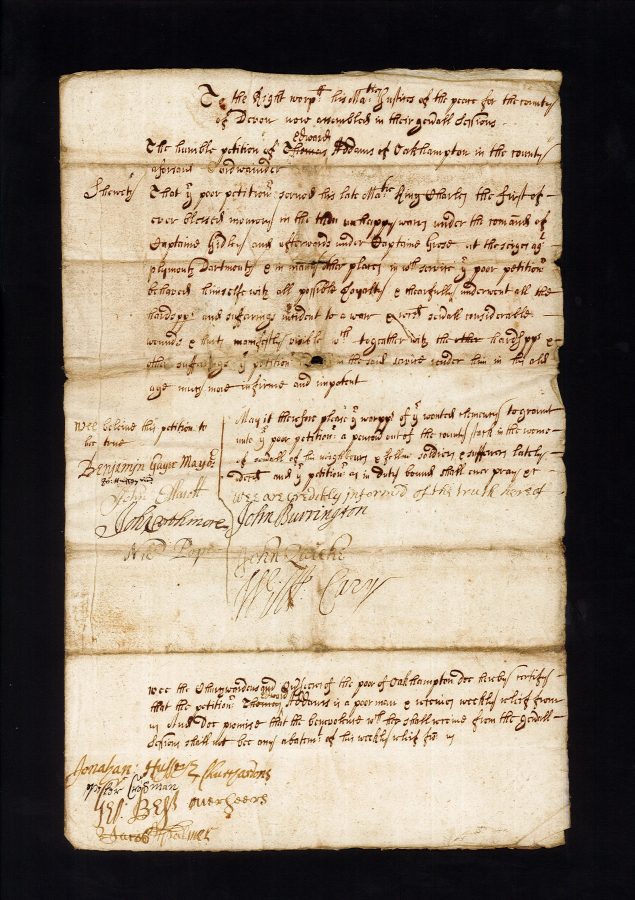 To the Right worpll his Maties Justices of the peace for the county
of Devon now assembled in their genall Sessions
Edward
The humble petition of Thomas Addams of Oakhampton in the county
aforsaid Cordwainder
Sheweth
That yr poor petitionr served his late Matie King Charles the first of
ever blessed memory in the then unhappy wars under the comand of
Captaine Gidley and afterwards under Captaine at the seiges agt
plymouth Dartmouth & in many other places in wch service yr poor petitionr
behaved himselfe with all possible loyalty & chearfully underwent all the
hardspps and sufferings incident to a warr & recd sevall considerable
wounds & hurts manifestly visible wch together with the other hardspps &
other sufferings yr petitionr in the said service render him in this old
age much more infirme and impotent
May it therefore please yr worpps of yr wonted clemency to graunt
unto yr poor petitionr a pencion out of the county stock in the roome
of sevall of his neighbours & fellow soldiers & sufferers lately
deced and yr petitionr as in duty bound shall ever pray &c
wee beleive this petition to
bee true
Benjamyn Gayer Mayor
John Ellacott
John Cothmore
Wee are credibly informd of the truth hereof
John Burrington
Will Cary
wee the Churchwardens and Overseers of the poor of Oakhampton doe hereby certifie
Edward
that the petitionr Thomas Addams is a poor man & receives weekly releif from
us And doe promise that the benevolence wch he shall receive from the genall
Sessions shall not bee any abatemt of his weekly releif from us
Jonathan Hussey Churchwardens
Overseers
Jacob